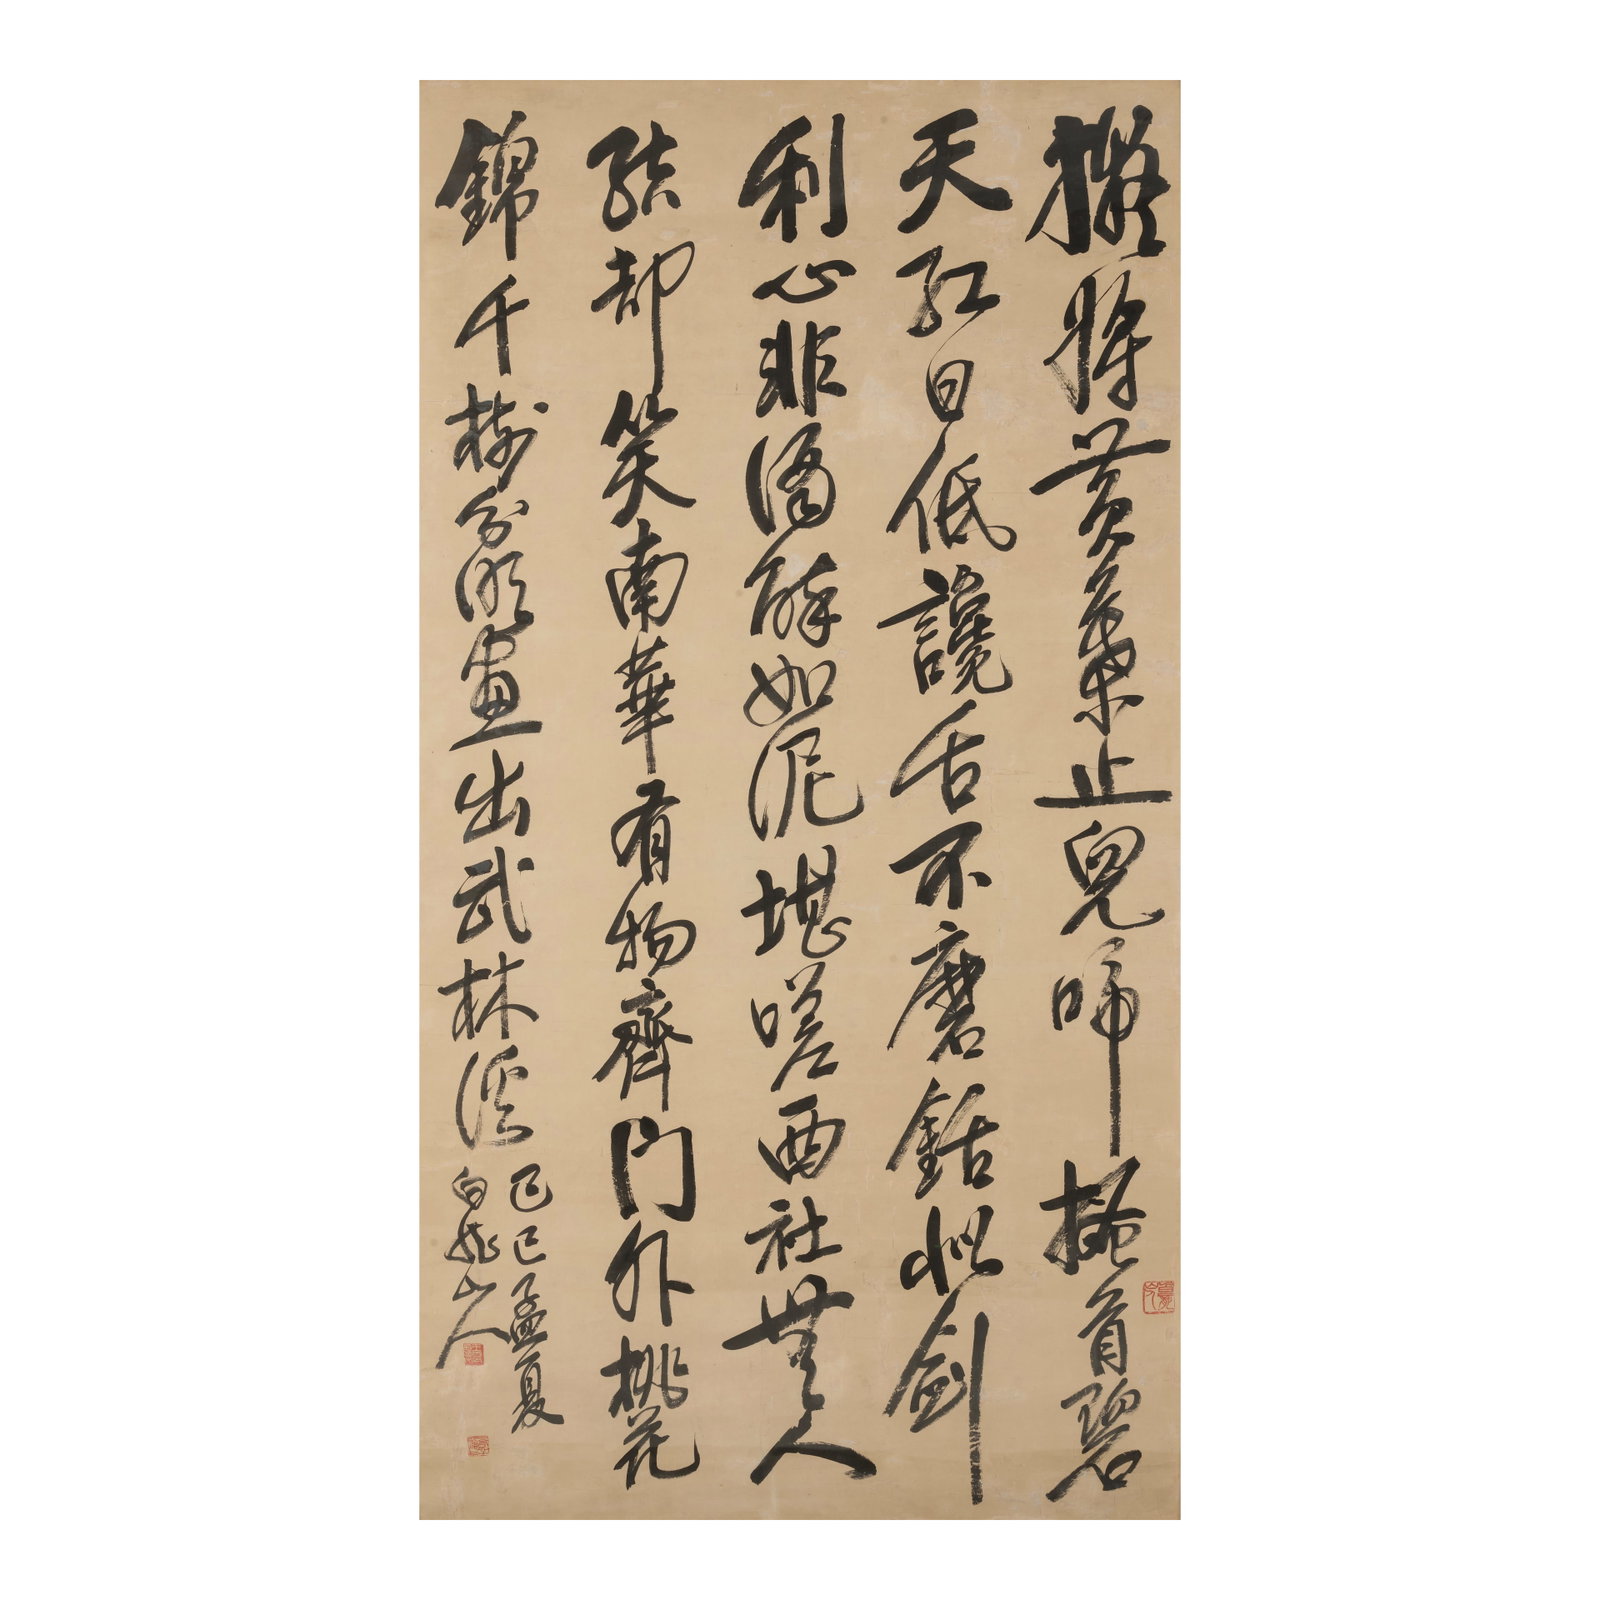 擬將黃葉止兒啼搔首碧
天紅日低讒舌不磨銛似劍
利心非酒醉如泥堪嗟西社無人
結却笑南華有物齊門外桃花
錦千樹分明畫出武林溪
己巳孟夏
白龍山人